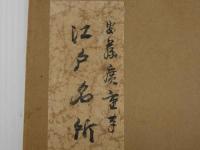 安藤廣重筆
江戸名所